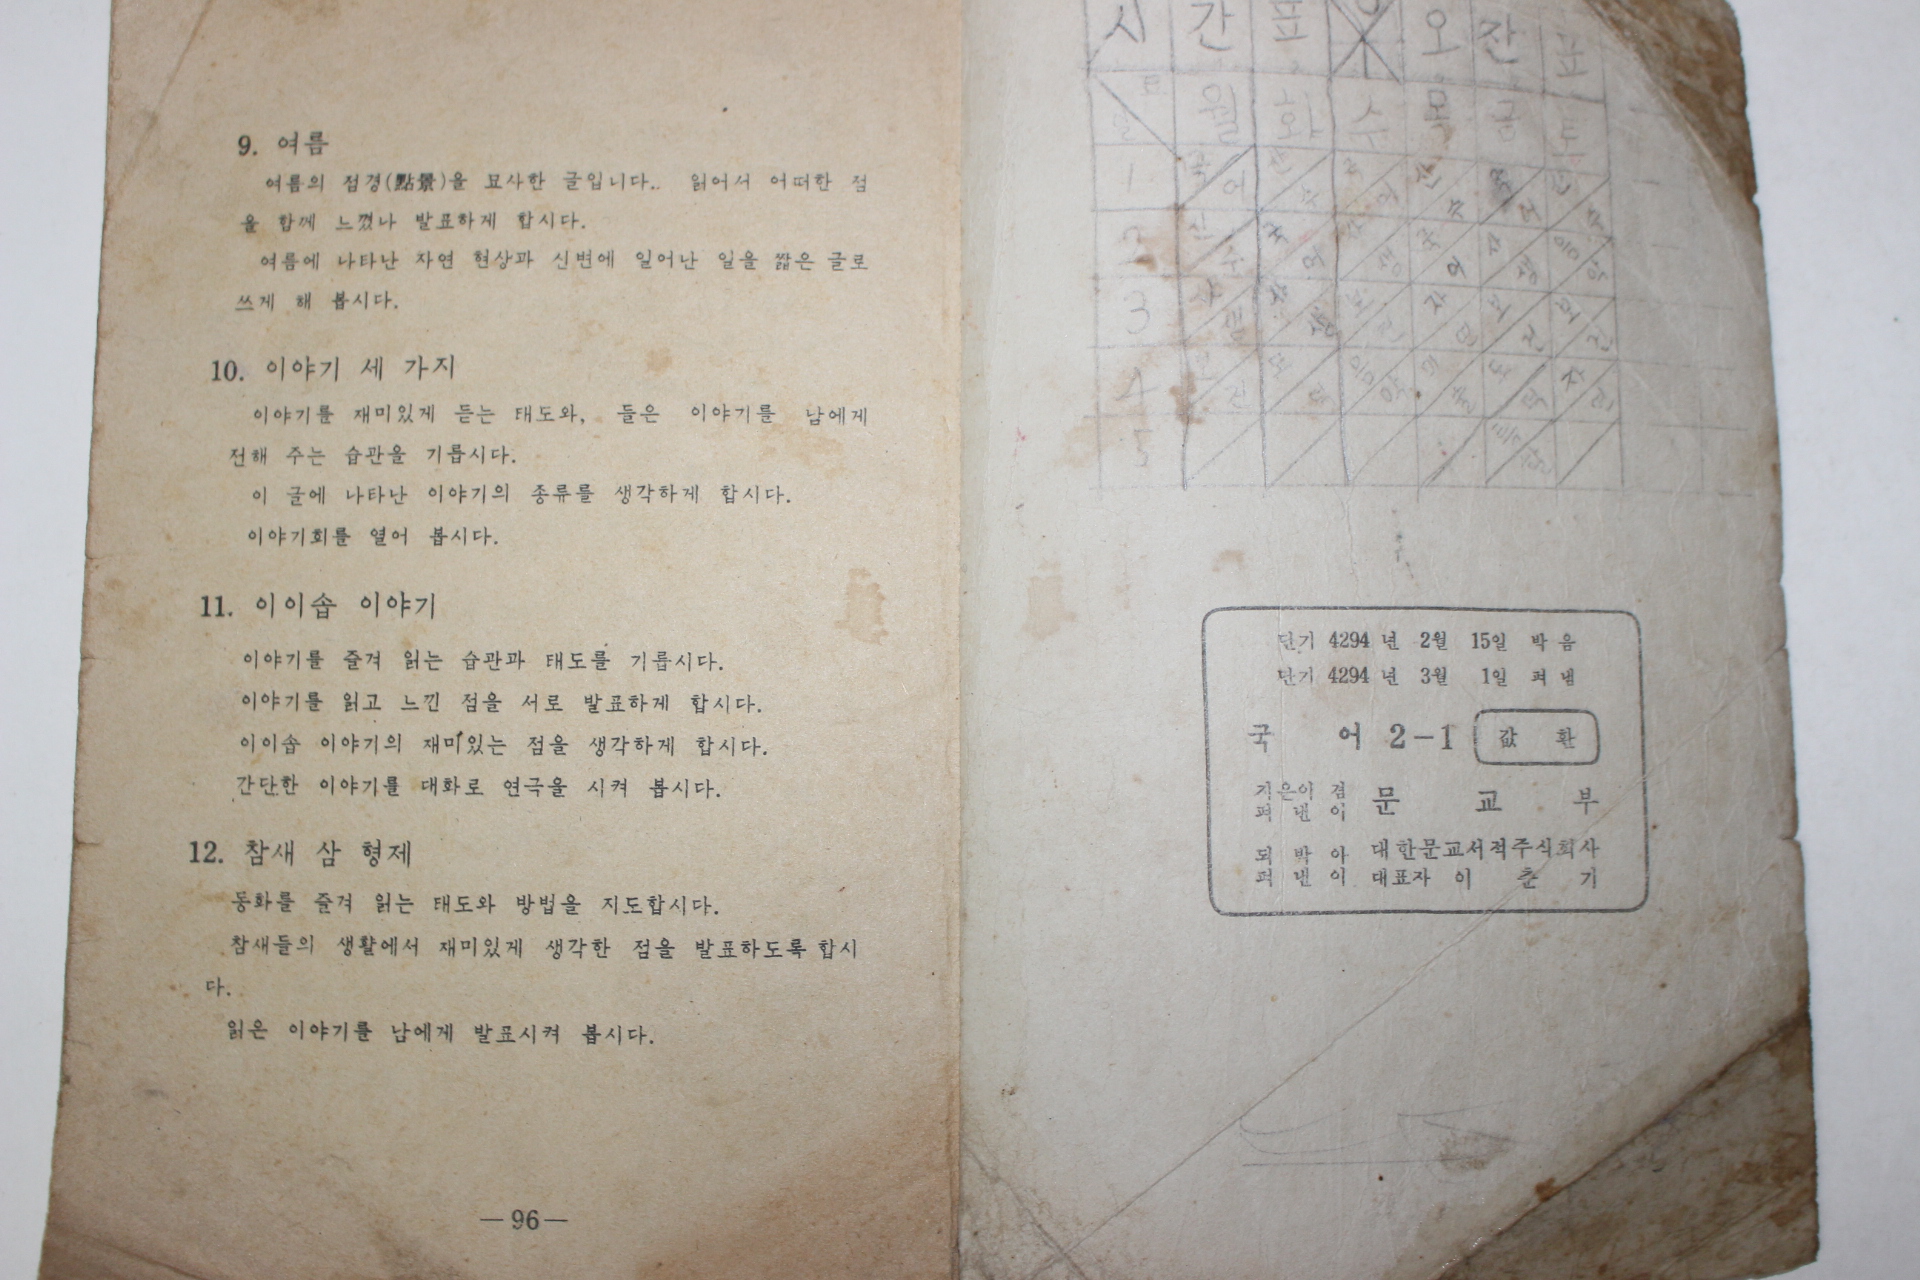 9. 여름
여름의 점경(點景)을 묘사한 글입니다.. 읽어서 어떠한 점
을 함께 느꼈나 발표하게 합시다.
여름에 나타난 자연 현상과 신변에 일어난 일을 짧은 글로
쓰게 해 봅시다.
10. 이야기 세 가지
이야기를 재미있게 듣는 태도와, 들은 이야기를 남에게
전해 주는 습관을 기릅시다.
이 글에 나타난 이야기의 종류를 생각하게 합시다.
이야기회를 열어 봅시다.
11. 이이솝 이야기
이야기를 즐겨 읽는 습관과 태도를 기릅시다.
이야기를 읽고 느낀 점을 서로 발표하게 합시다.
이이솝 이야기의 재미있는 점을 생각하게 합시다.
간단한 이야기를 대화로 연극을 시켜 봅시다.
12. 참새 삼 형제
동화를 즐겨 읽는 태도와 방법을 지도합시다.
참새들의 생활에서 재미있게 생각한 점을 발표하도록 합시
다.
읽은 이야기를 남에게 발표시켜 봅시다.
—96—
시 간 표 오 잔 표
월 화 수 목 금 토
1 국어 산수
2 산수 국어
3
4
5
단기 4294년 2월 15일 박음
단기 4294년 3월 1일 펴냄
국 어 2-1 값 환
지은이 겸
펴 낸 이 문 교 부
되 박 아 대한문교서적주식회사
펴 낸 이 대표자 이 춘 기